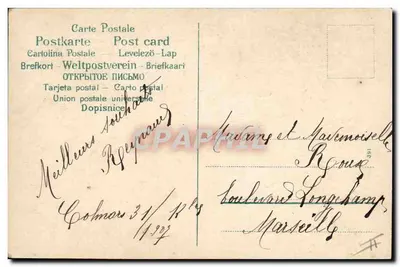 Carte Postale
Postkarte - Post card
Cartolina Postale - Levelező-Lap
Brefkort - Weltpostverein - Briefkaart
ОТКРЫТОЕ ПИСЬМО
Tarjeta postal - Carto postal
Union postale universelle
Dopisnice
Meilleurs souhaits
Reynaud
Colmars 31/
1907
Madame et Mademoiselle
Roux
Boulevard Longchamp
Marseille
CPAPHIL